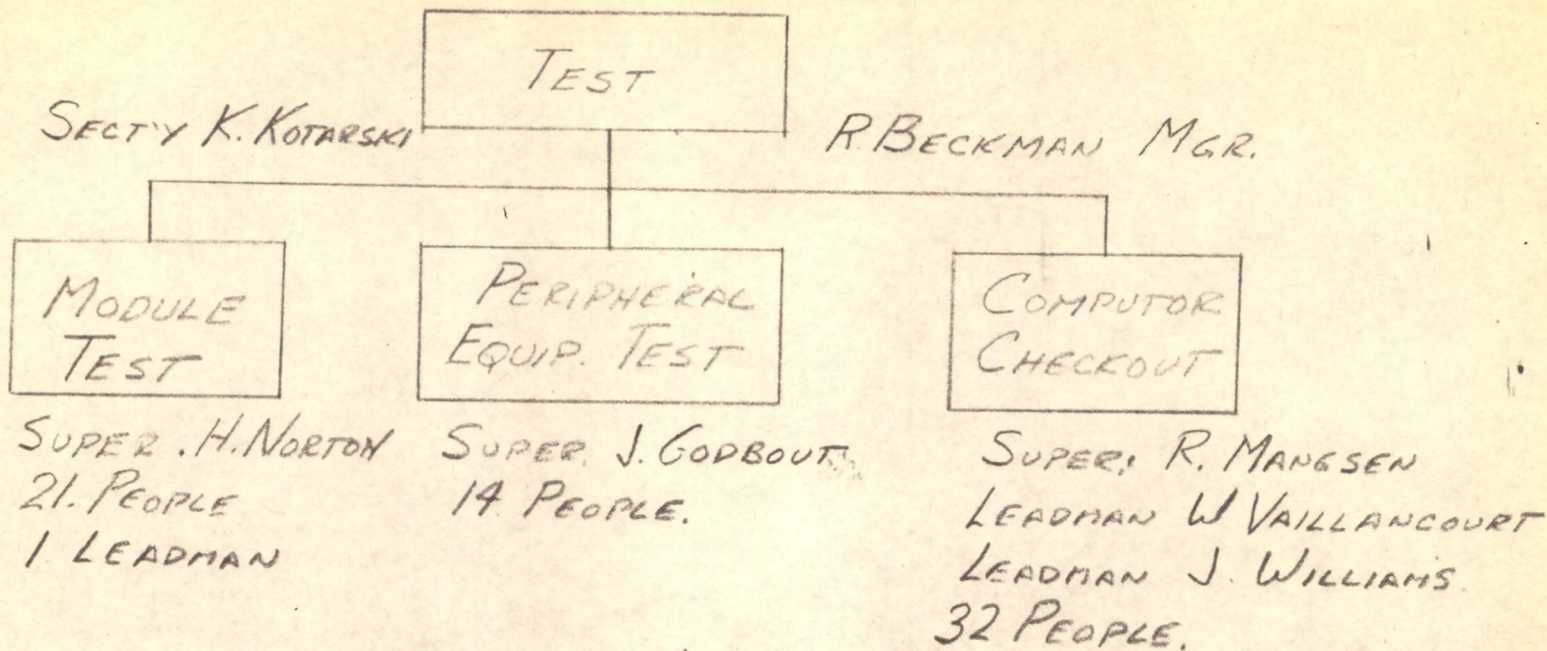 TEST
SECT'Y K. KOTARSKI
R. BECKMAN MGR.
MODULE
TEST
PERIPHERAL
EQUIP. TEST
COMPUTOR
CHECKOUT
SUPER. H. NORTON
21. PEOPLE
1 LEADMAN
SUPER. J. GODBOUT
14 PEOPLE.
SUPER: R. MANGSEN
LEADMAN W VAILLANCOURT
LEADMAN J. WILLIAMS
32 PEOPLE.